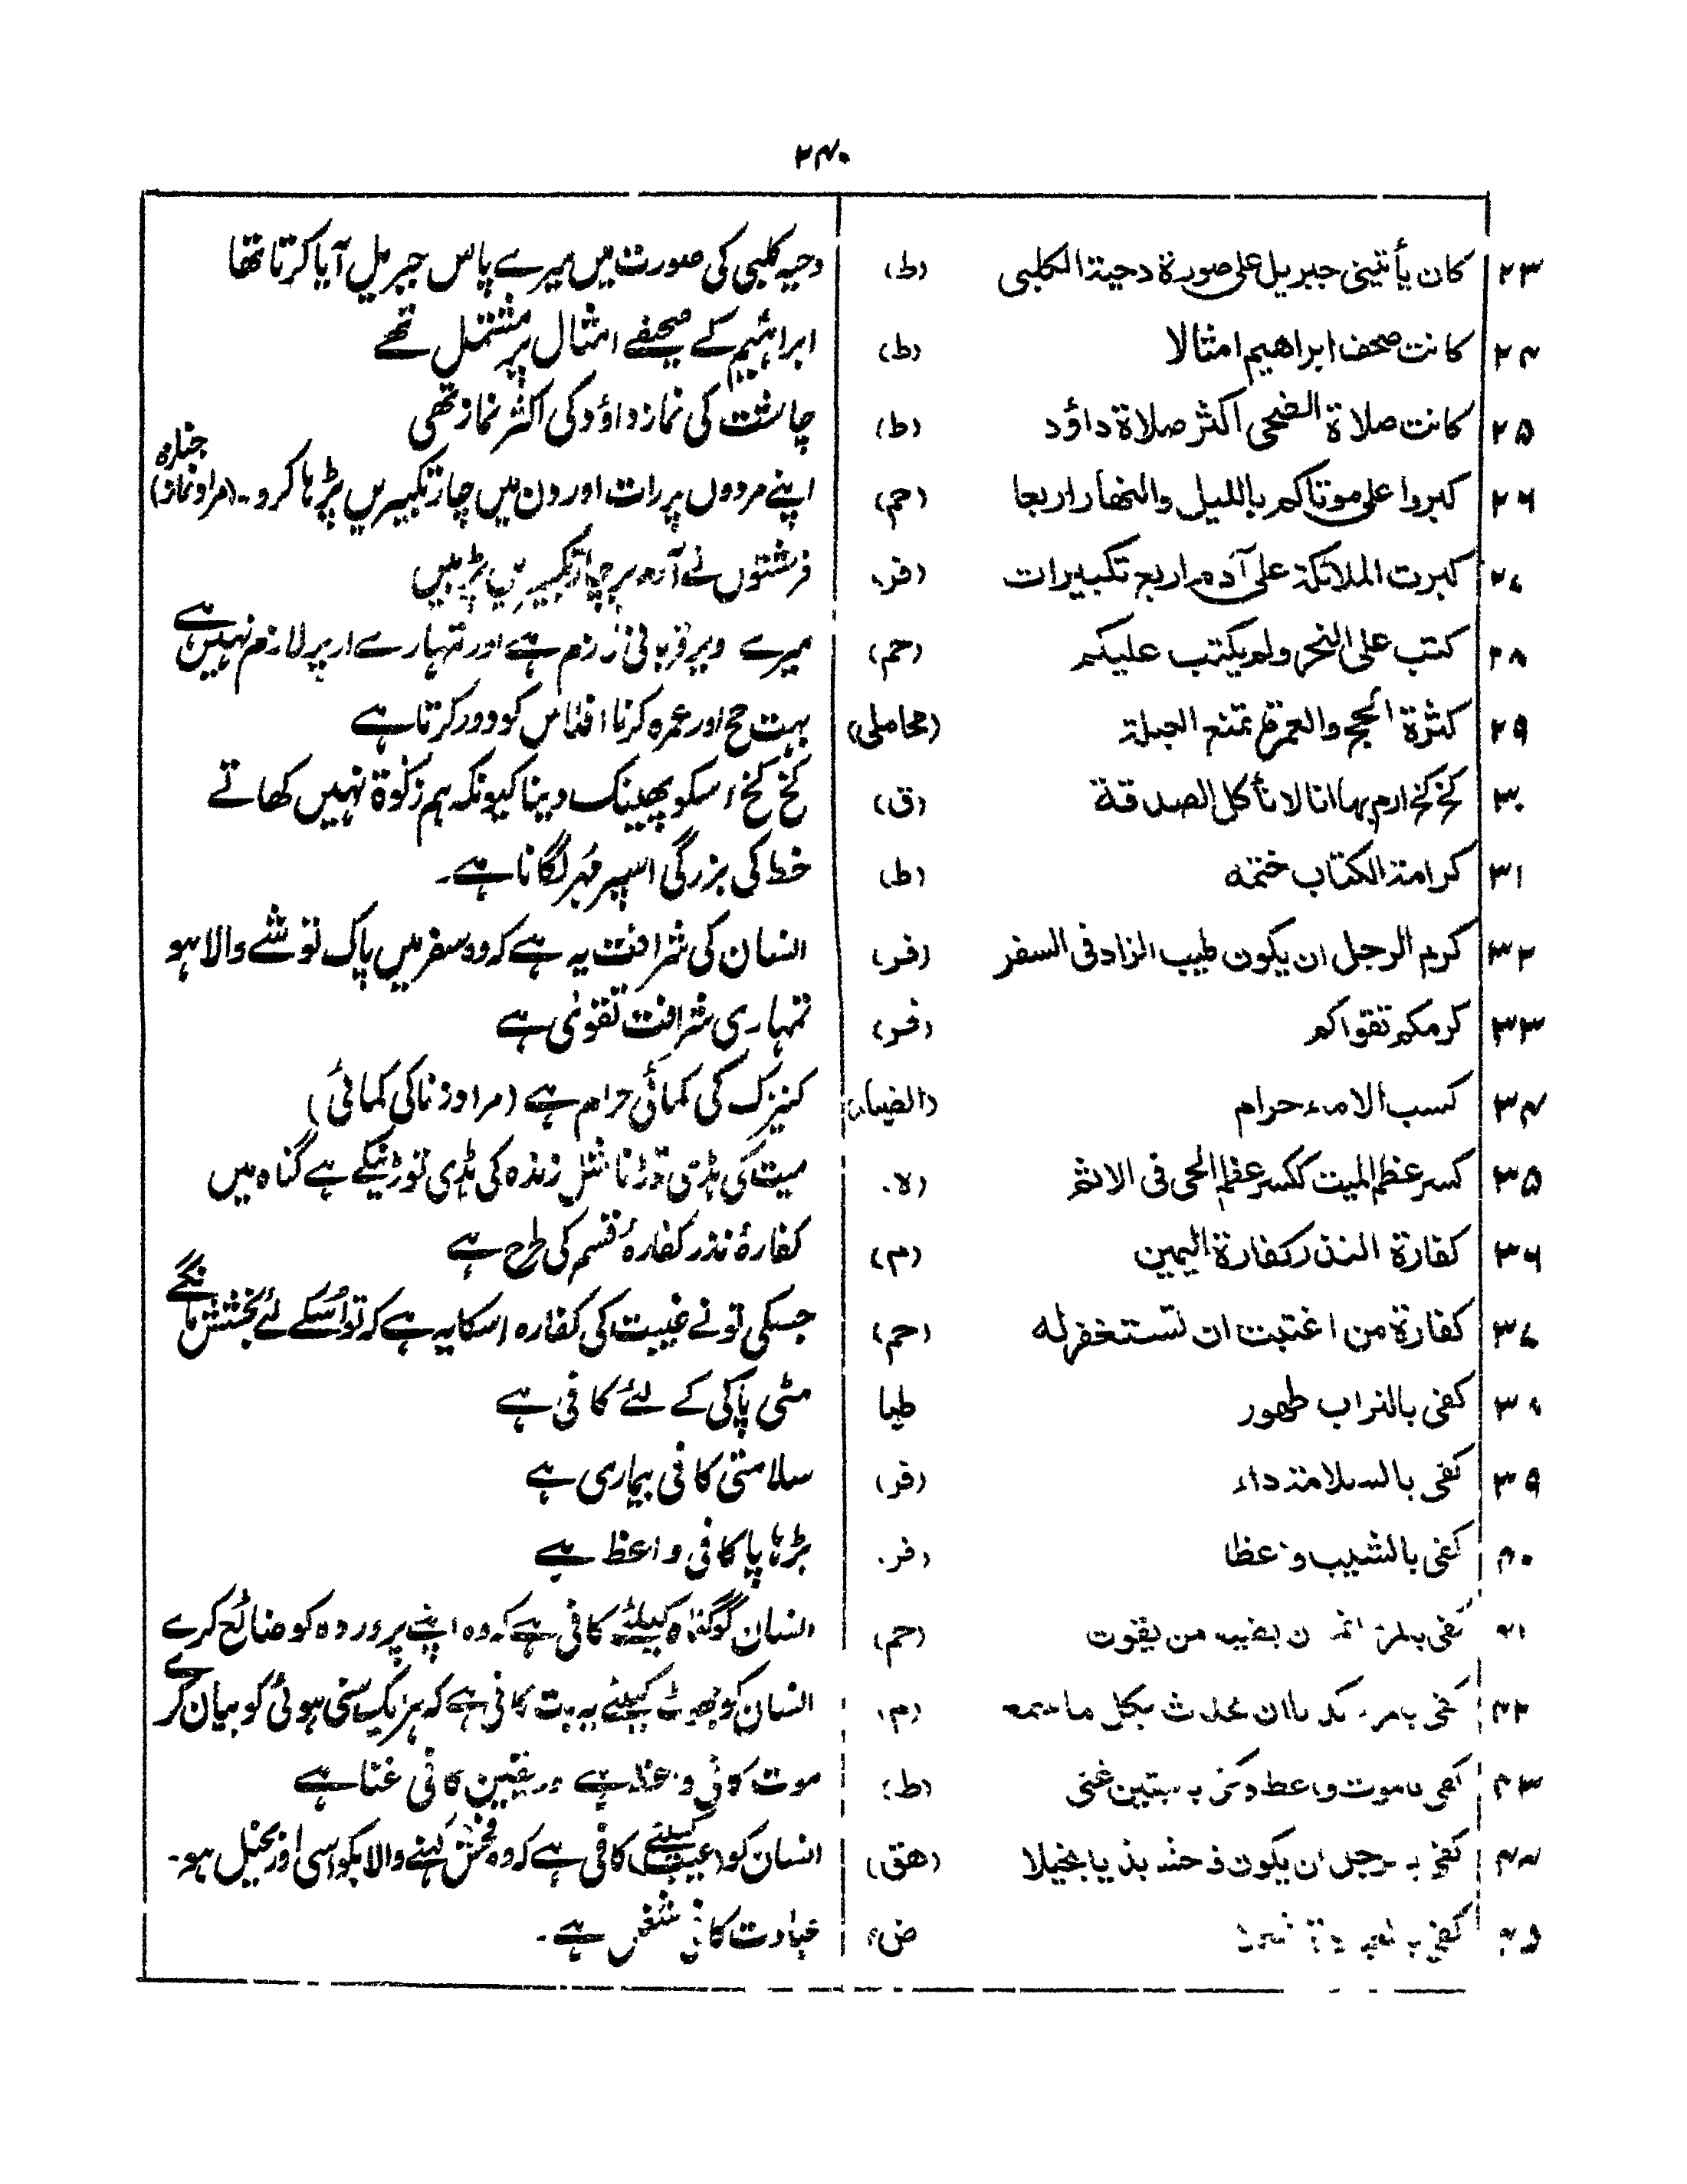 ۲۴۰
۲۳ كان يأتينى جبريل على صورة دحية الكلبى (ط) دحیہ کلبی کی صورت میں میرے پاس جبریل آیا کرتا تھا
۲۴ كانت صحف ابراهيم امثالا (ط) ابراہیم کے صحیفے امثال پر مشتمل تھے
۲۵ كانت صلاة الضحى اكثر صلاة داؤد (ط) چاشت کی نماز داؤد کی اکثر نماز تھی
۲۶ كبروا على موتاكم بالليل والنهار اربعا (حم) اپنے مردوں پر رات اور دن میں چار تکبیریں پڑہا کرو۔ (مراد نماز جنازہ)
۲۷ كبرت الملائكة على آدم اربع تكبيرات (فر) فرشتوں نے آدم پر چار تکبیریں پڑہیں
۲۸ كتب على النحر ولم يكتب عليكم (حم) میرے وپر قربانی لازم ہے اور تمہارے اوپر لازم نہیں ہے
۲۹ كثرة الحج والعمرة تمنع العيلة (محاملی) بہت حج اور عمرہ کرنا افلاس کو دور کرتا ہے
۳۰ كخ كخ ارم بها انا لا نأكل الصدقة (ق) کخ کخ اسکو پھینک دینا کیونکہ ہم زکوٰۃ نہیں کھاتے
۳۱ كرامة الكتاب ختمه (ط) خط کی بزرگی اسپر مُہر لگانا ہے۔
۳۲ كرم الرجل ان يكون طيب الزاد فى السفر (فر) انسان کی شرافت یہ ہے کہ وہ سفر میں پاک توشے والا ہو
۳۳ كرمكم تقواكم (فر) تمہاری شرافت تقویٰ ہے
۳۴ كسب الاماء حرام (الضیاء) کنیزک کی کمائی حرام ہے (مراد زنا کی کمائی)
۳۵ كسر عظم الميت ككسر عظم الحى فى الاثم (ہ) میت کی ہڈی توڑنا مثل زندہ کی ہڈی توڑنیکے ہے گناہ میں
۳۶ كفارة النذر كفارة اليمين (م) کفارۂ نذر کفارۂ قسم کی طرح ہے
۳۷ كفارة من اغتبت ان تستغفر له (حم) جسکی تو نے غیبت کی کفارہ اسکا یہ ہے کہ تو اُسکے لئے بخشش مانگے
۳۸ كفى بالتراب طهور طیا مٹی پاکی کے لئے کافی ہے
۳۹ كفى بالسلامة داء (فر) سلامتی کافی بیماری ہے
۴۰ كفى بالشيب واعظا (فر) بڑہاپا کافی واعظ ہے
۴۱ كفى من يقوت (حم) انسان کو گناہ کیلئے کافی ہے کہ وہ اپنے پروردہ کو ضائع کرے
۴۲ كفى بكل ما سمع (م) انسان کو جھوٹ کیلئے یہ بات کافی ہے کہ ہر یک سنی ہوئی کو بیان کرے
۴۳ كفى بالموت واعظا وكفى باليقين غنى (ط) موت کافی واعظ ہے اور یقین کافی غنا ہے
۴۴ كفى بالرجل ان يكون فاحشا بذيا بخيلا (هق) انسان کو (عیب کیلئے) کافی ہے کہ وہ فحش کہنے والا بکواسی اور بخیل ہو۔
۴۵ كفى (ض) عبادت کافی شغل ہے۔